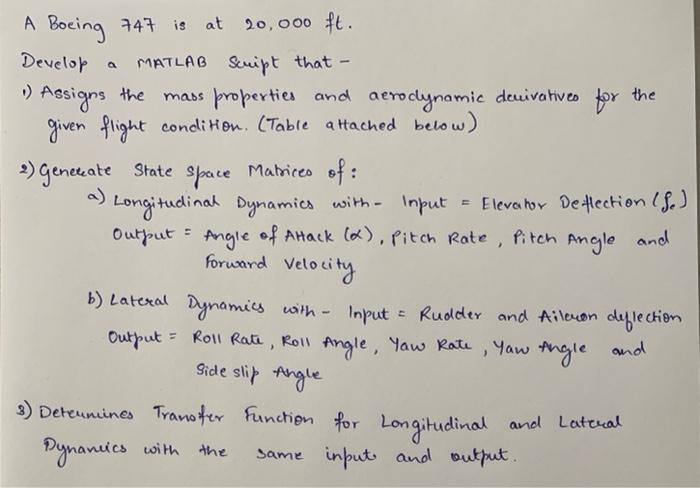 A Boeing 747 is at 20,000 ft.
Develop a MATLAB Script that -
1) Assigns the mass properties and aerodynamic derivatives for the
given flight condition. (Table attached below)
2) Generate State Space Matrices of :
a) Longitudinal Dynamics with - Input = Elevator Deflection (δe)
Output = Angle of Attack (α), Pitch Rate, Pitch Angle and
Forward Velocity
b) Lateral Dynamics with - Input = Rudder and Aileron deflection
Output = Roll Rate, Roll Angle, Yaw Rate, Yaw Angle and
Side slip Angle
3) Determines Transfer Function for Longitudinal and Lateral
Dynamics with the same input and output.